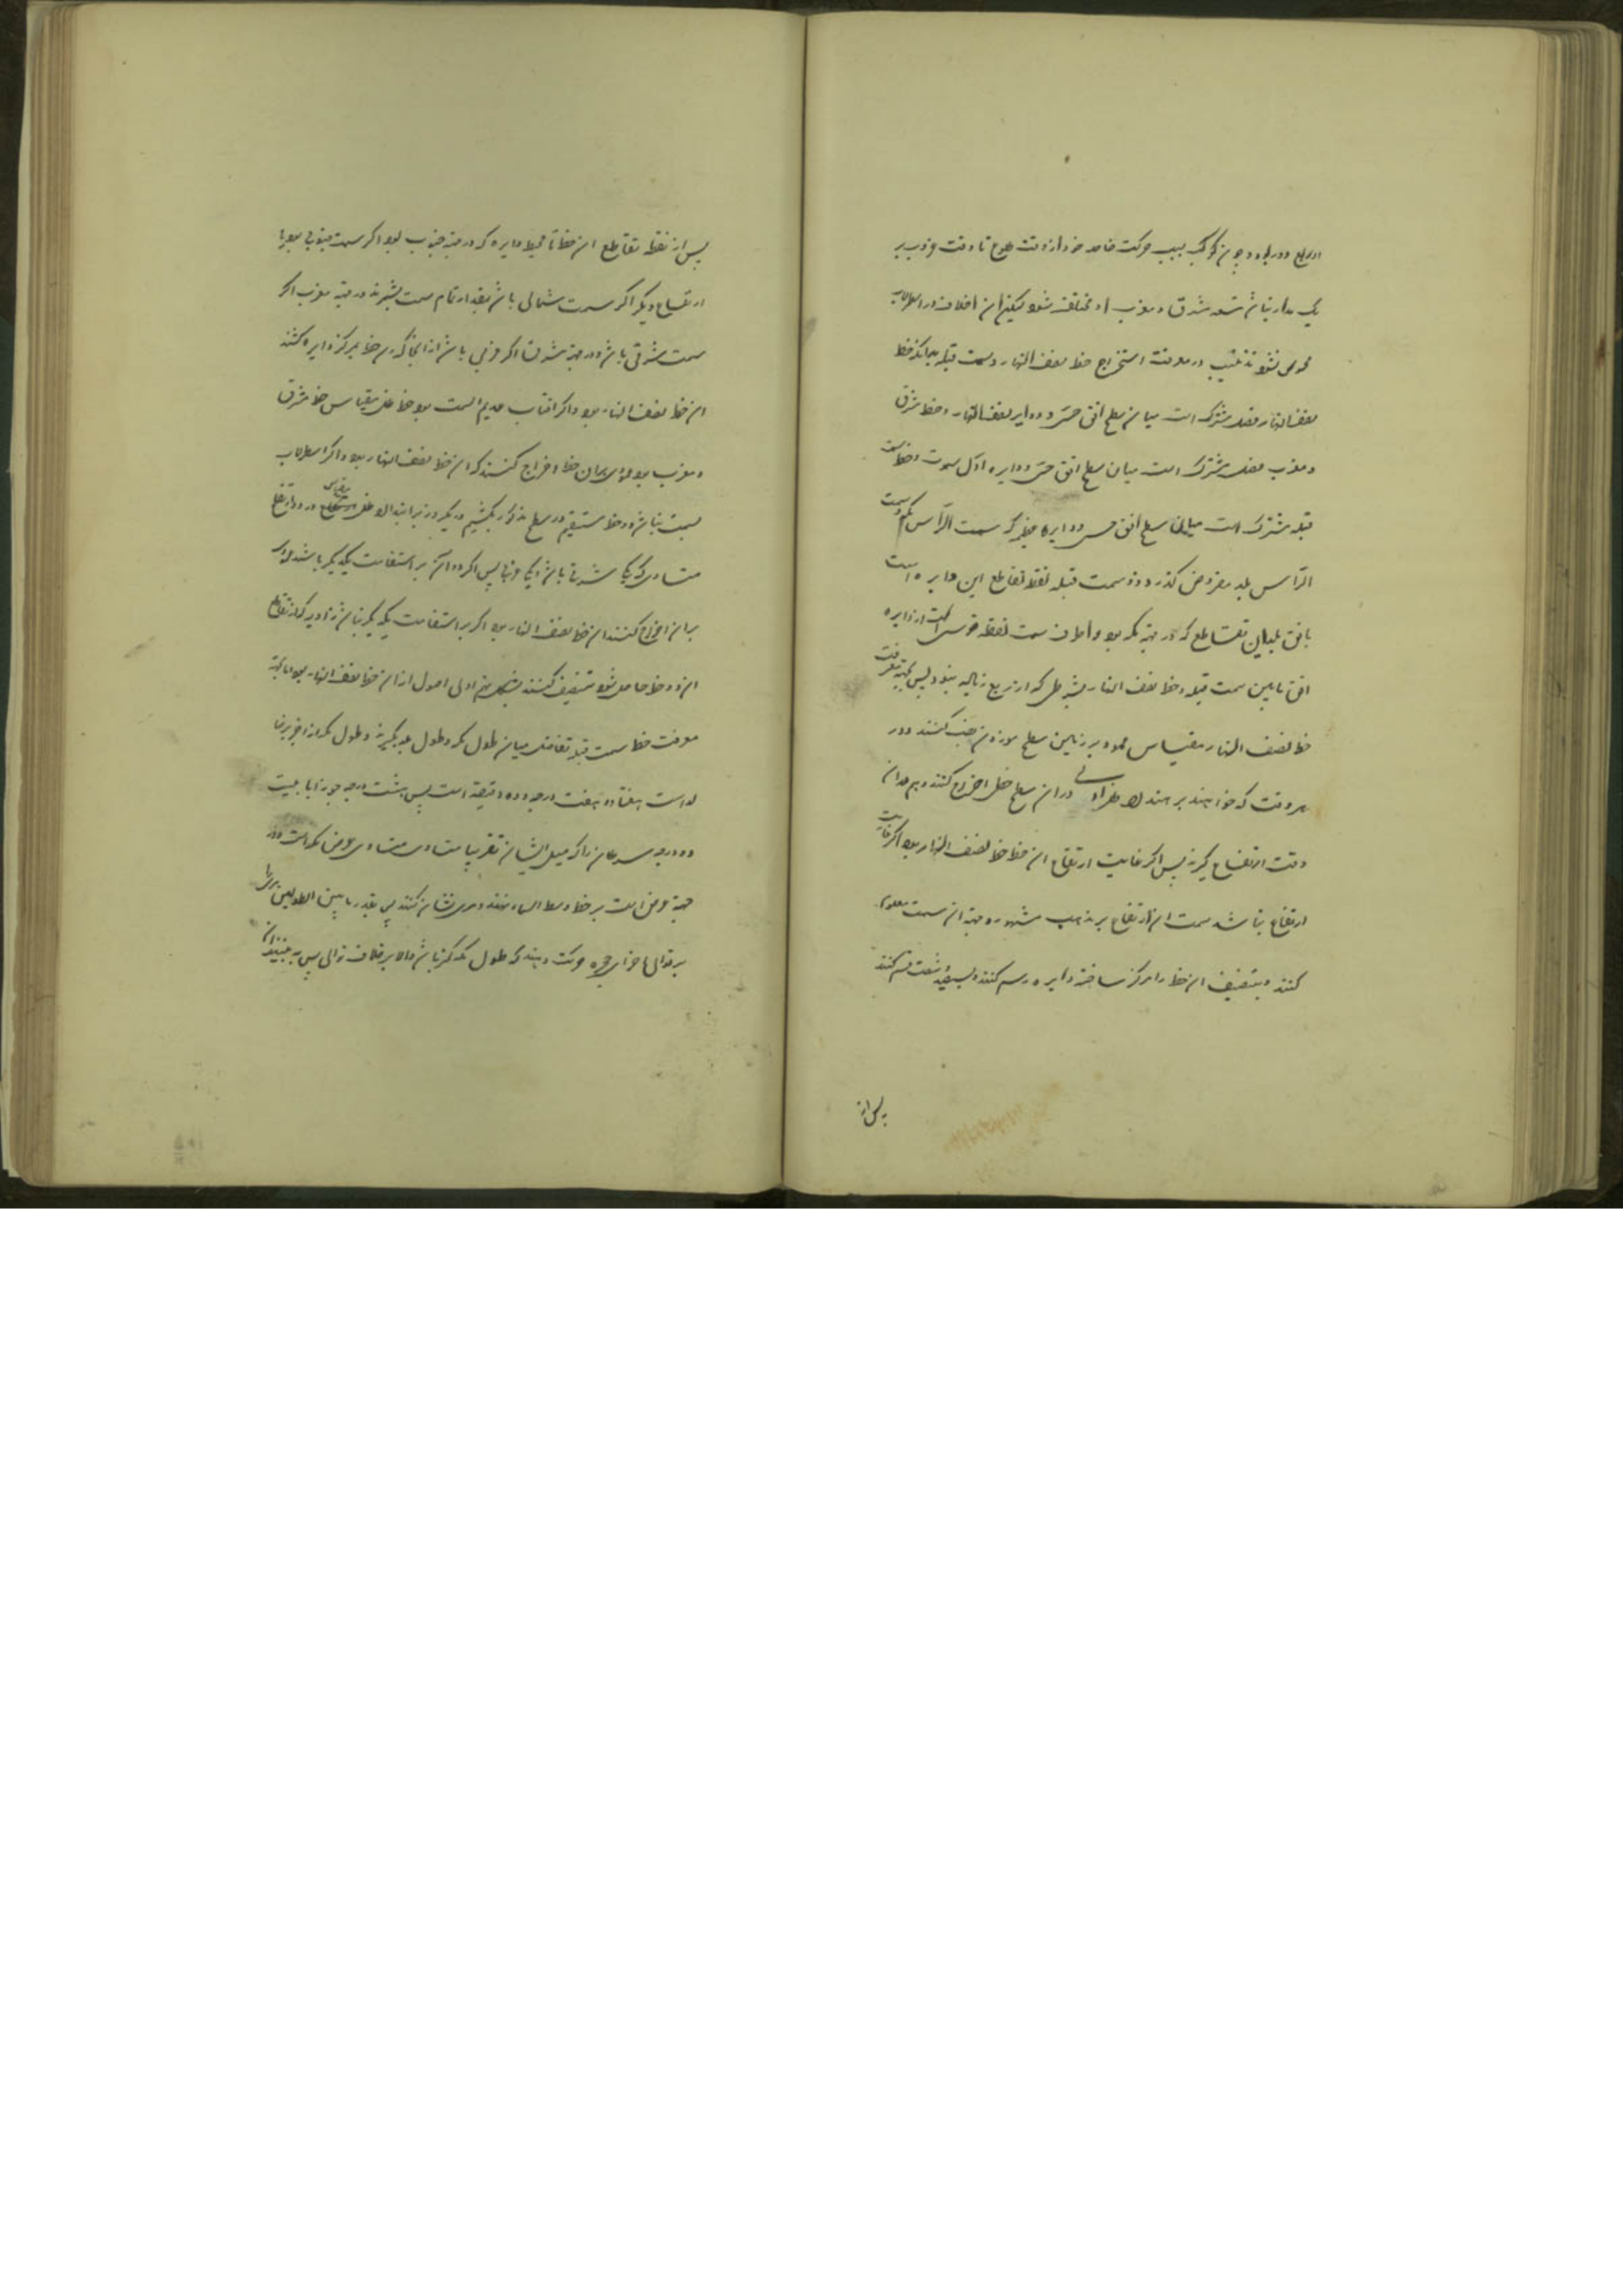 دور بود و چون کوکب بسبب حرکت خاصه خود از وقت طلوع تا وقت غروب بر
یک مدار نباشد سعه مشرق و مغرب او مختلف شود لیکن آن اختلاف در اسطرلاب
محسوس نشود تذنیب در معرفت استخراج خط نصف النهار و سمت قبله بدانکه خط
نصف النهار فصل مشترک است میان سطح افق حسی و دایره نصف النهار و خط مشرق
و مغرب فصل مشترک است میان سطح افق حسی و دایره اول سموت و خط سمت
قبله مشترک است میان سطح افق حسی و دایره عظیمه که سمت الرأس مکه و سمت
الرأس بلد مفروض گذرد و سمت قبله نقطه تقاطع این دایره است
با افق بلد این تقاطع که در جهة مکه بود و انحراف سمت نقطه قوسی است از دایره
افق مابین سمت قبله و خط نصف النهار بشرطی که از ربع زیاده نبود پس بجهة معرفت
خط نصف النهار مقیاس عمود بر زمین سطح موزون نصب کنند و در
هر وقت که خواهند بر منتصف ظل او در آن سطح خطی اخراج کنند و هم در آن
وقت ارتفاع گیرند پس اگر غایت ارتفاع آن خط خط نصف النهار بود و اگر غایت
ارتفاع نباشد سمت آن ارتفاع بر مذهب مشهور و جهة آن سمت معلوم
کنند و منتصف آن خط را مرکز ساخته دایره رسم کنند و بسیصد و شصت قسم کنند
پس از
پس از نقطه تقاطع آن خط تا محیط دایره که در جهة جنوب بود اگر سمت جنوبی بود یا
ارتفاع دیگر اگر سمت شمالی باشد بقدر تمام سمت بشمرند در جهة مغرب اگر
سمت شرقی باشد و در جهة مشرق اگر غربی باشد از آنجا که رسد خط بمرکز دایره کشند
آن خط نصف النهار بود و اگر آفتاب عدیم السمت بود خط ظل مقیاس خط مشرق
و مغرب بود عمودی بر آن خط اخراج کنند که آن خط نصف النهار بود و اگر اسطرلاب
مسمت نباشد دو خط مستقیم در سطح مذکور بکشیم در یکروز بر امتداد ظل مقیاس در دو ارتفاع
متساوی که یکی شرقی باشد و یکی غربی پس اگر دو آن بر استقامت یکدیگر باشند عمودی
بر آن اخراج کنند آن خط نصف النهار بود اگر بر استقامت یکدیگر نباشند زاویه که از تقاطع
آن دو خط حاصل شود تنصیف کنند بشکل نهم اولی اصول از آن خط نصف النهار بود اما بجهة
معرفت خط سمت قبله تفاضل میان طول مکه و طول بلد بگیرند و طول مکه از جزایر
خالدات هفتاد و هفت درجه و ده دقیقه است پس هشت درجه جوزا یا بیست
و دو درجه سرطان را که میل ایشان تقریبا متساوی عرض مکه است و در
جهة عرض است بر خط وسط السماء نهند و مری نشان کنند پس بقدر ما بین الطولین مری را
بر توالی اجزای حجره حرکت دهند که طول مکه کمتر باشد و الا بر خلاف توالی پس به بینند